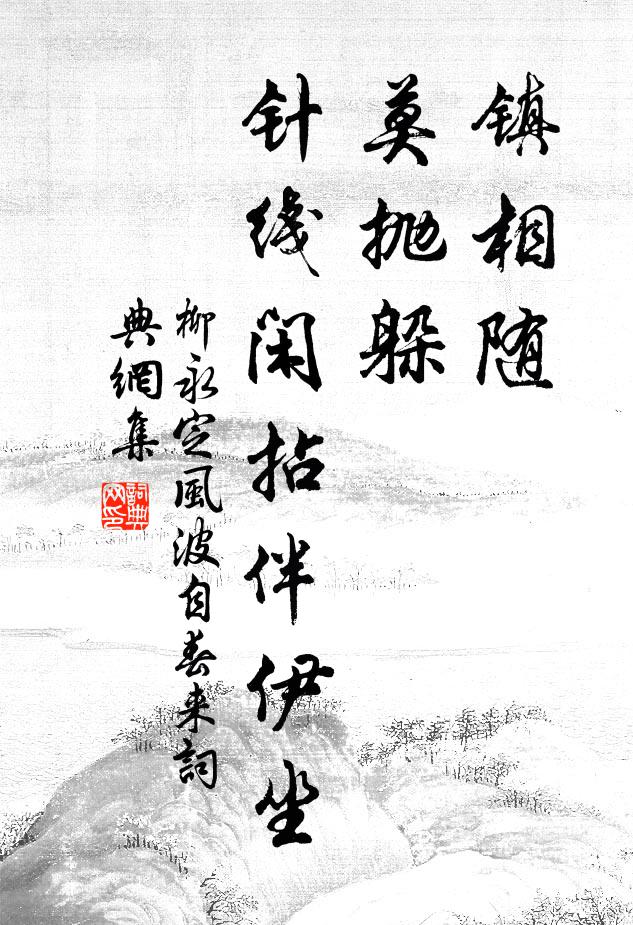 镇相随
莫抛躲
针线闲拈伴伊坐
柳永定風波自春来詞
典網集
詞典
网印